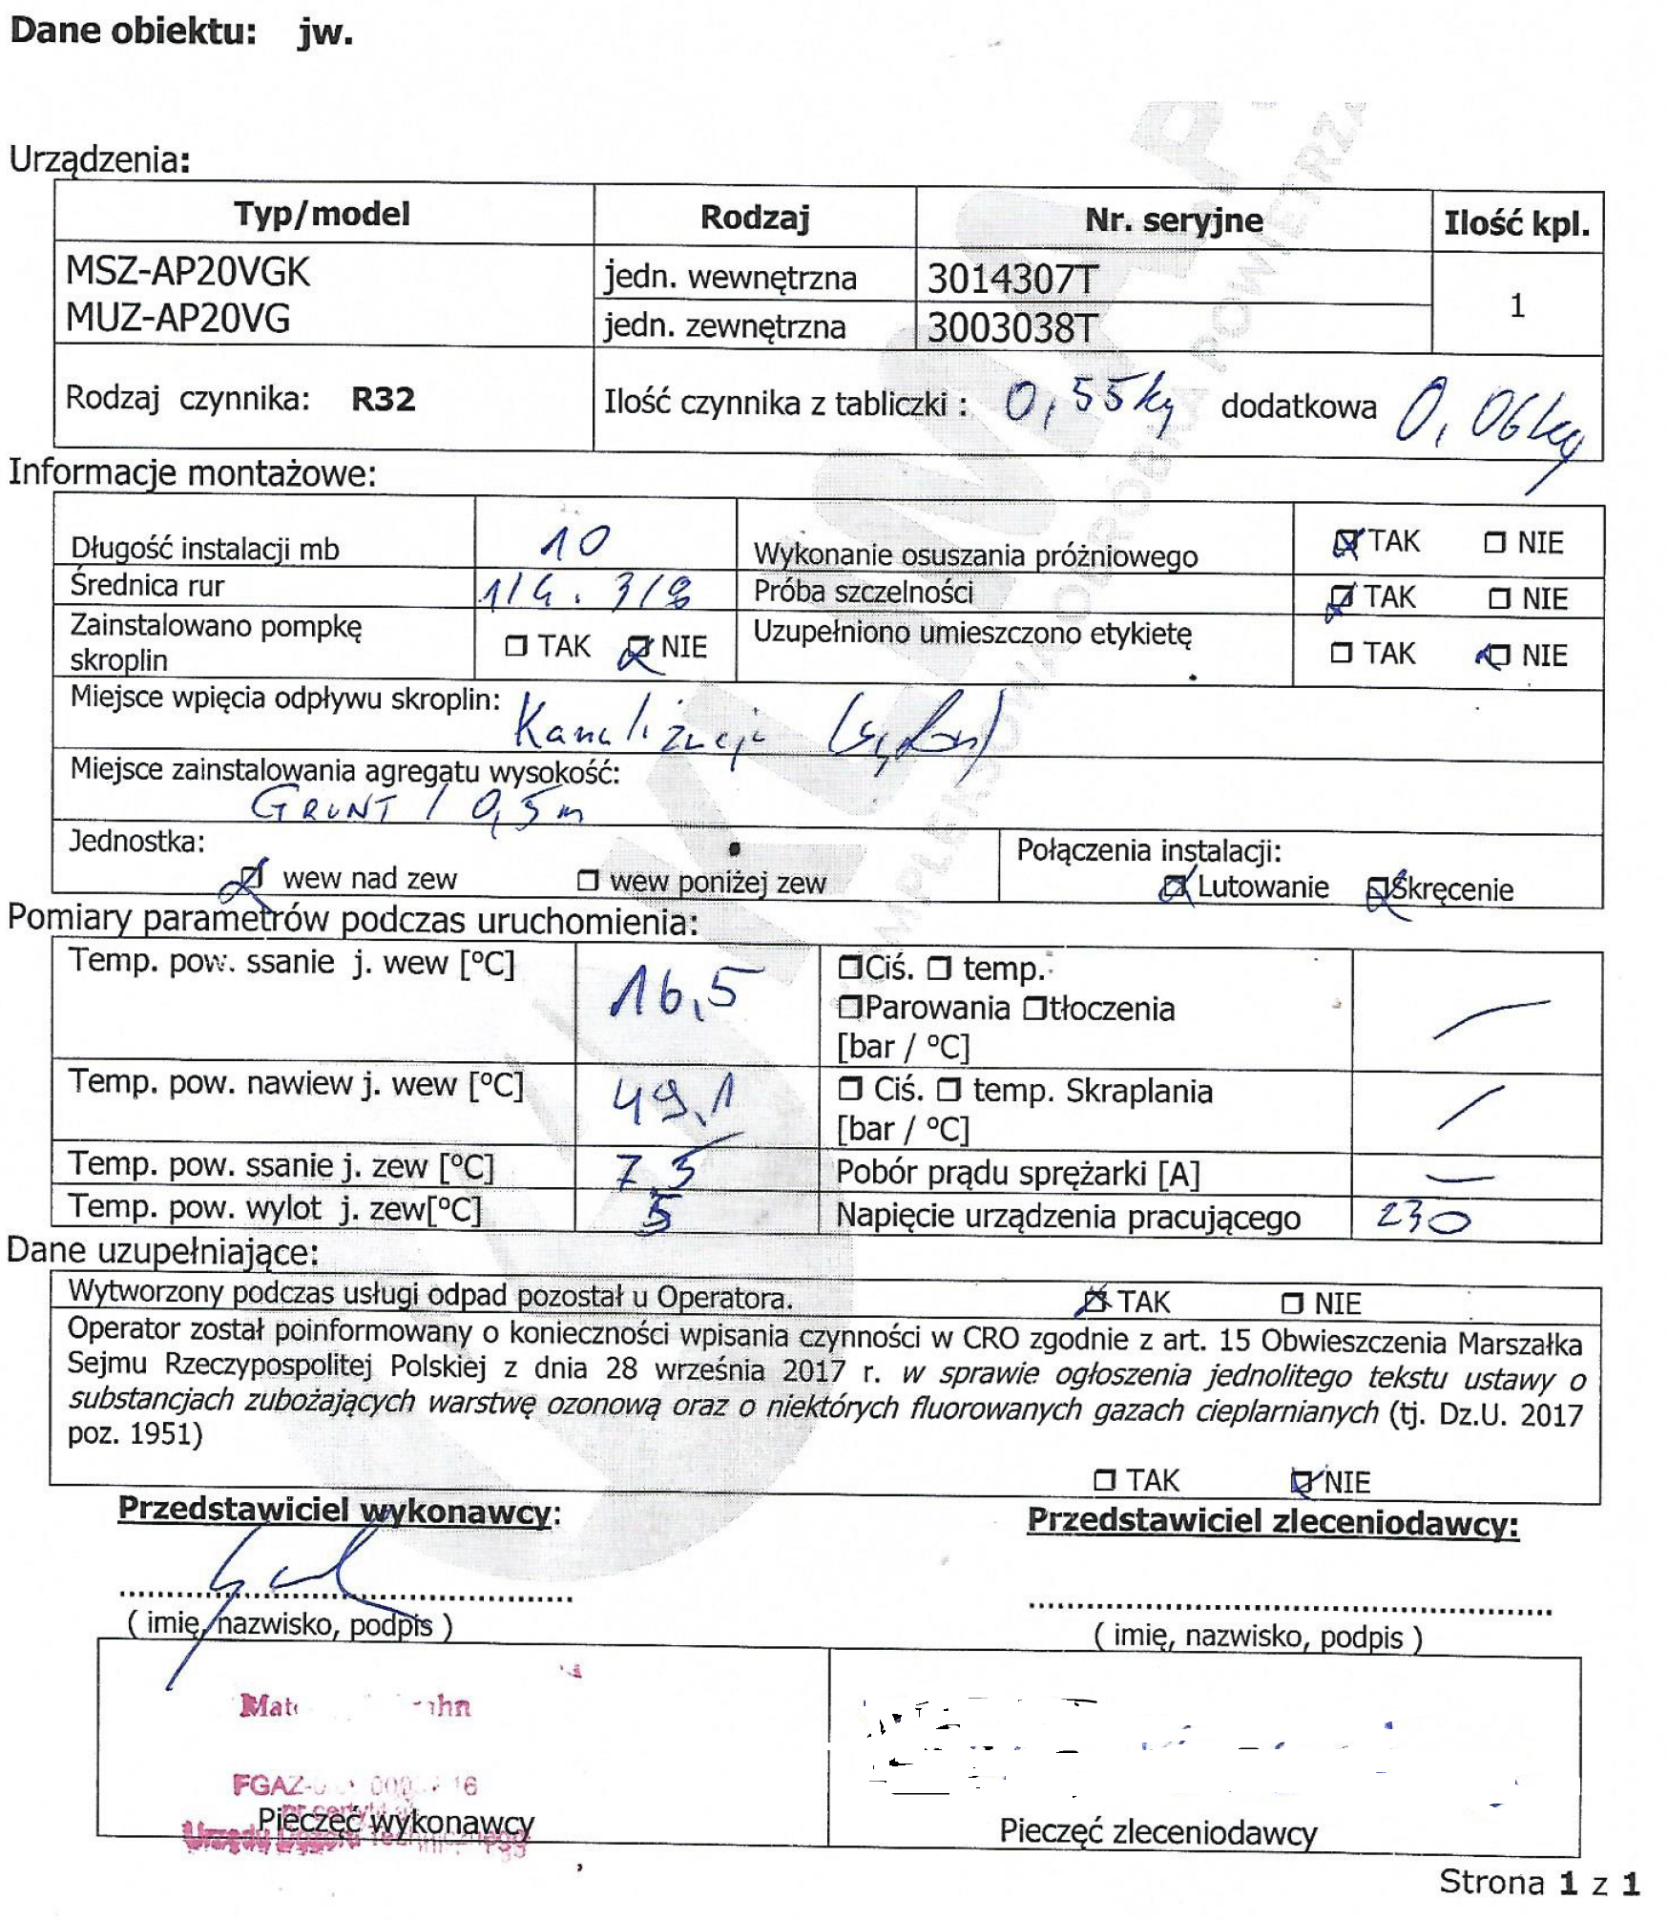 Dane obiektu: jw.
Urządzenia:
Typ/model Rodzaj Nr. seryjne Ilość kpl.
MSZ-AP20VGK jedn. wewnętrzna 3014307T
MUZ-AP20VG jedn. zewnętrzna 3003038T 1
Rodzaj czynnika: R32 Ilość czynnika z tabliczki : 0,55kg dodatkowa 0,06kg
Informacje montażowe:
Długość instalacji mb 10 Wykonanie osuszania próżniowego TAK NIE
Średnica rur 1/4. 3/8 Próba szczelności TAK NIE
Zainstalowano pompkę
skroplin TAK NIE Uzupełniono umieszczono etykietę TAK NIE
Miejsce wpięcia odpływu skroplin: Kanalizacja
Miejsce zainstalowania agregatu wysokość:
GRUNT / 0,5m
Jednostka:
wew nad zew wew poniżej zew
Połączenia instalacji:
Lutowanie Skręcenie
Pomiary parametrów podczas uruchomienia:
Temp. pow. ssanie j. wew [°C] 16,5
Ciś. temp.
Parowania tłoczenia
[bar / °C]
Temp. pow. nawiew j. wew [°C] 49,1
Ciś. temp. Skraplania
[bar / °C]
Temp. pow. ssanie j. zew [°C] 7,5 Pobór prądu sprężarki [A]
Temp. pow. wylot j. zew[°C] 5 Napięcie urządzenia pracującego 230
Dane uzupełniające:
Wytworzony podczas usługi odpad pozostał u Operatora. TAK NIE
Operator został poinformowany o konieczności wpisania czynności w CRO zgodnie z art. 15 Obwieszczenia Marszałka
Sejmu Rzeczypospolitej Polskiej z dnia 28 września 2017 r. w sprawie ogłoszenia jednolitego tekstu ustawy o
substancjach zubożających warstwę ozonową oraz o niektórych fluorowanych gazach cieplarnianych (tj. Dz.U. 2017
poz. 1951)
TAK NIE
Przedstawiciel wykonawcy: Przedstawiciel zleceniodawcy:
( imię, nazwisko, podpis ) ( imię, nazwisko, podpis )
Pieczęć wykonawcy Pieczęć zleceniodawcy
Urzędu Dozoru Technicznego
Strona 1 z 1